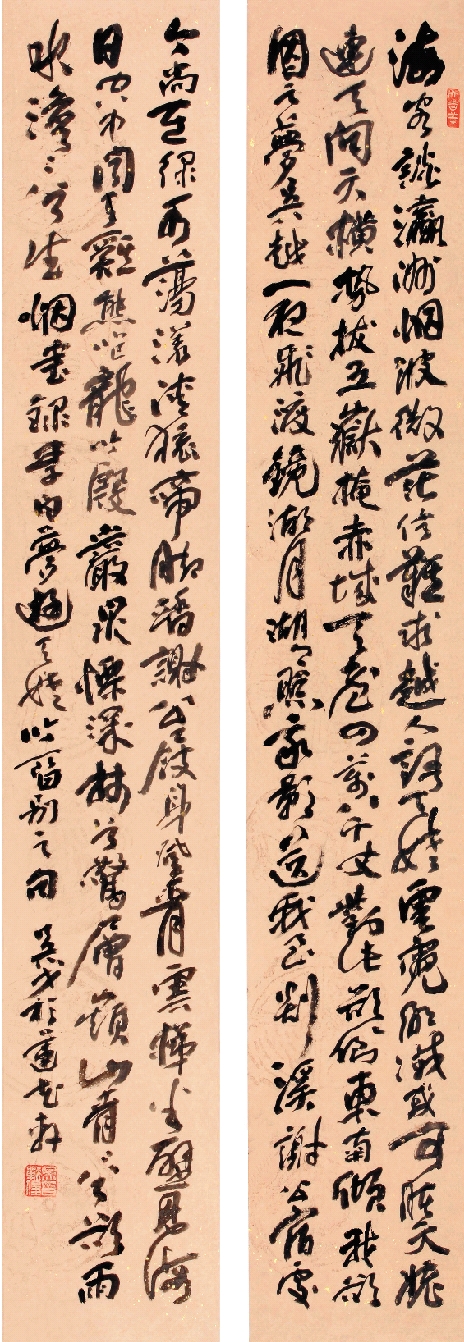 海客談瀛洲烟波微茫信難求越人語天姥雲霓明滅或可睹天姥
連天向天橫勢拔五嶽掩赤城天台四萬八千丈對此欲倒東南傾我欲
因之夢吳越一夜飛渡鏡湖月湖月照我影送我至剡溪謝公宿處
今尚在綠水蕩漾清猿啼脚著謝公屐身登青雲梯半壁見海
日空中聞天雞熊咆龍吟殷巖泉慄深林兮驚層巔山青々兮欲雨
水澹々兮生烟書錄李白夢遊天姥吟留別之句